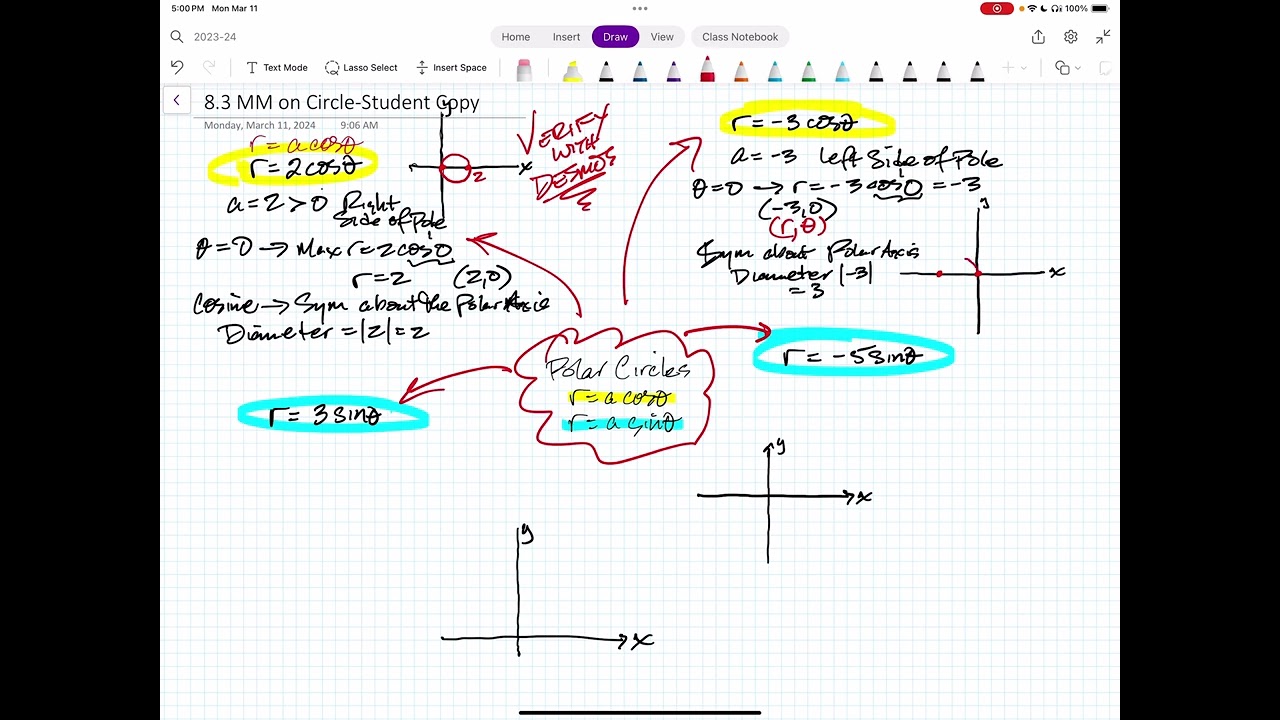 5:00 PM Mon Mar 11
100%
2023-24
Home Insert Draw View Class Notebook
Text Mode Lasso Select Insert Space
8.3 MM on Circle-Student Copy
Monday, March 11, 2024 9:06 AM
r = a cosθ
r = 2 cosθ
a = 2 > 0 Right
Side of Pole
θ = 0 → Max r = 2 cos 0
1
r = 2 (2, 0)
Cosine → Sym about the Polar Axis
Diameter = |2| = 2
y
x
2
VERIFY
WITH
DESMOS
r = -3 cosθ
a = -3 Left Side of Pole
θ = 0 → r = -3 cos 0 = -3
1
(-3, 0)
(r, θ)
Sym about Polar Axis
Diameter |-3|
= 3
y
x
Polar Circles
r = a cosθ
r = a sinθ
r = -5 sinθ
r = 3 sinθ
y
x
y
x